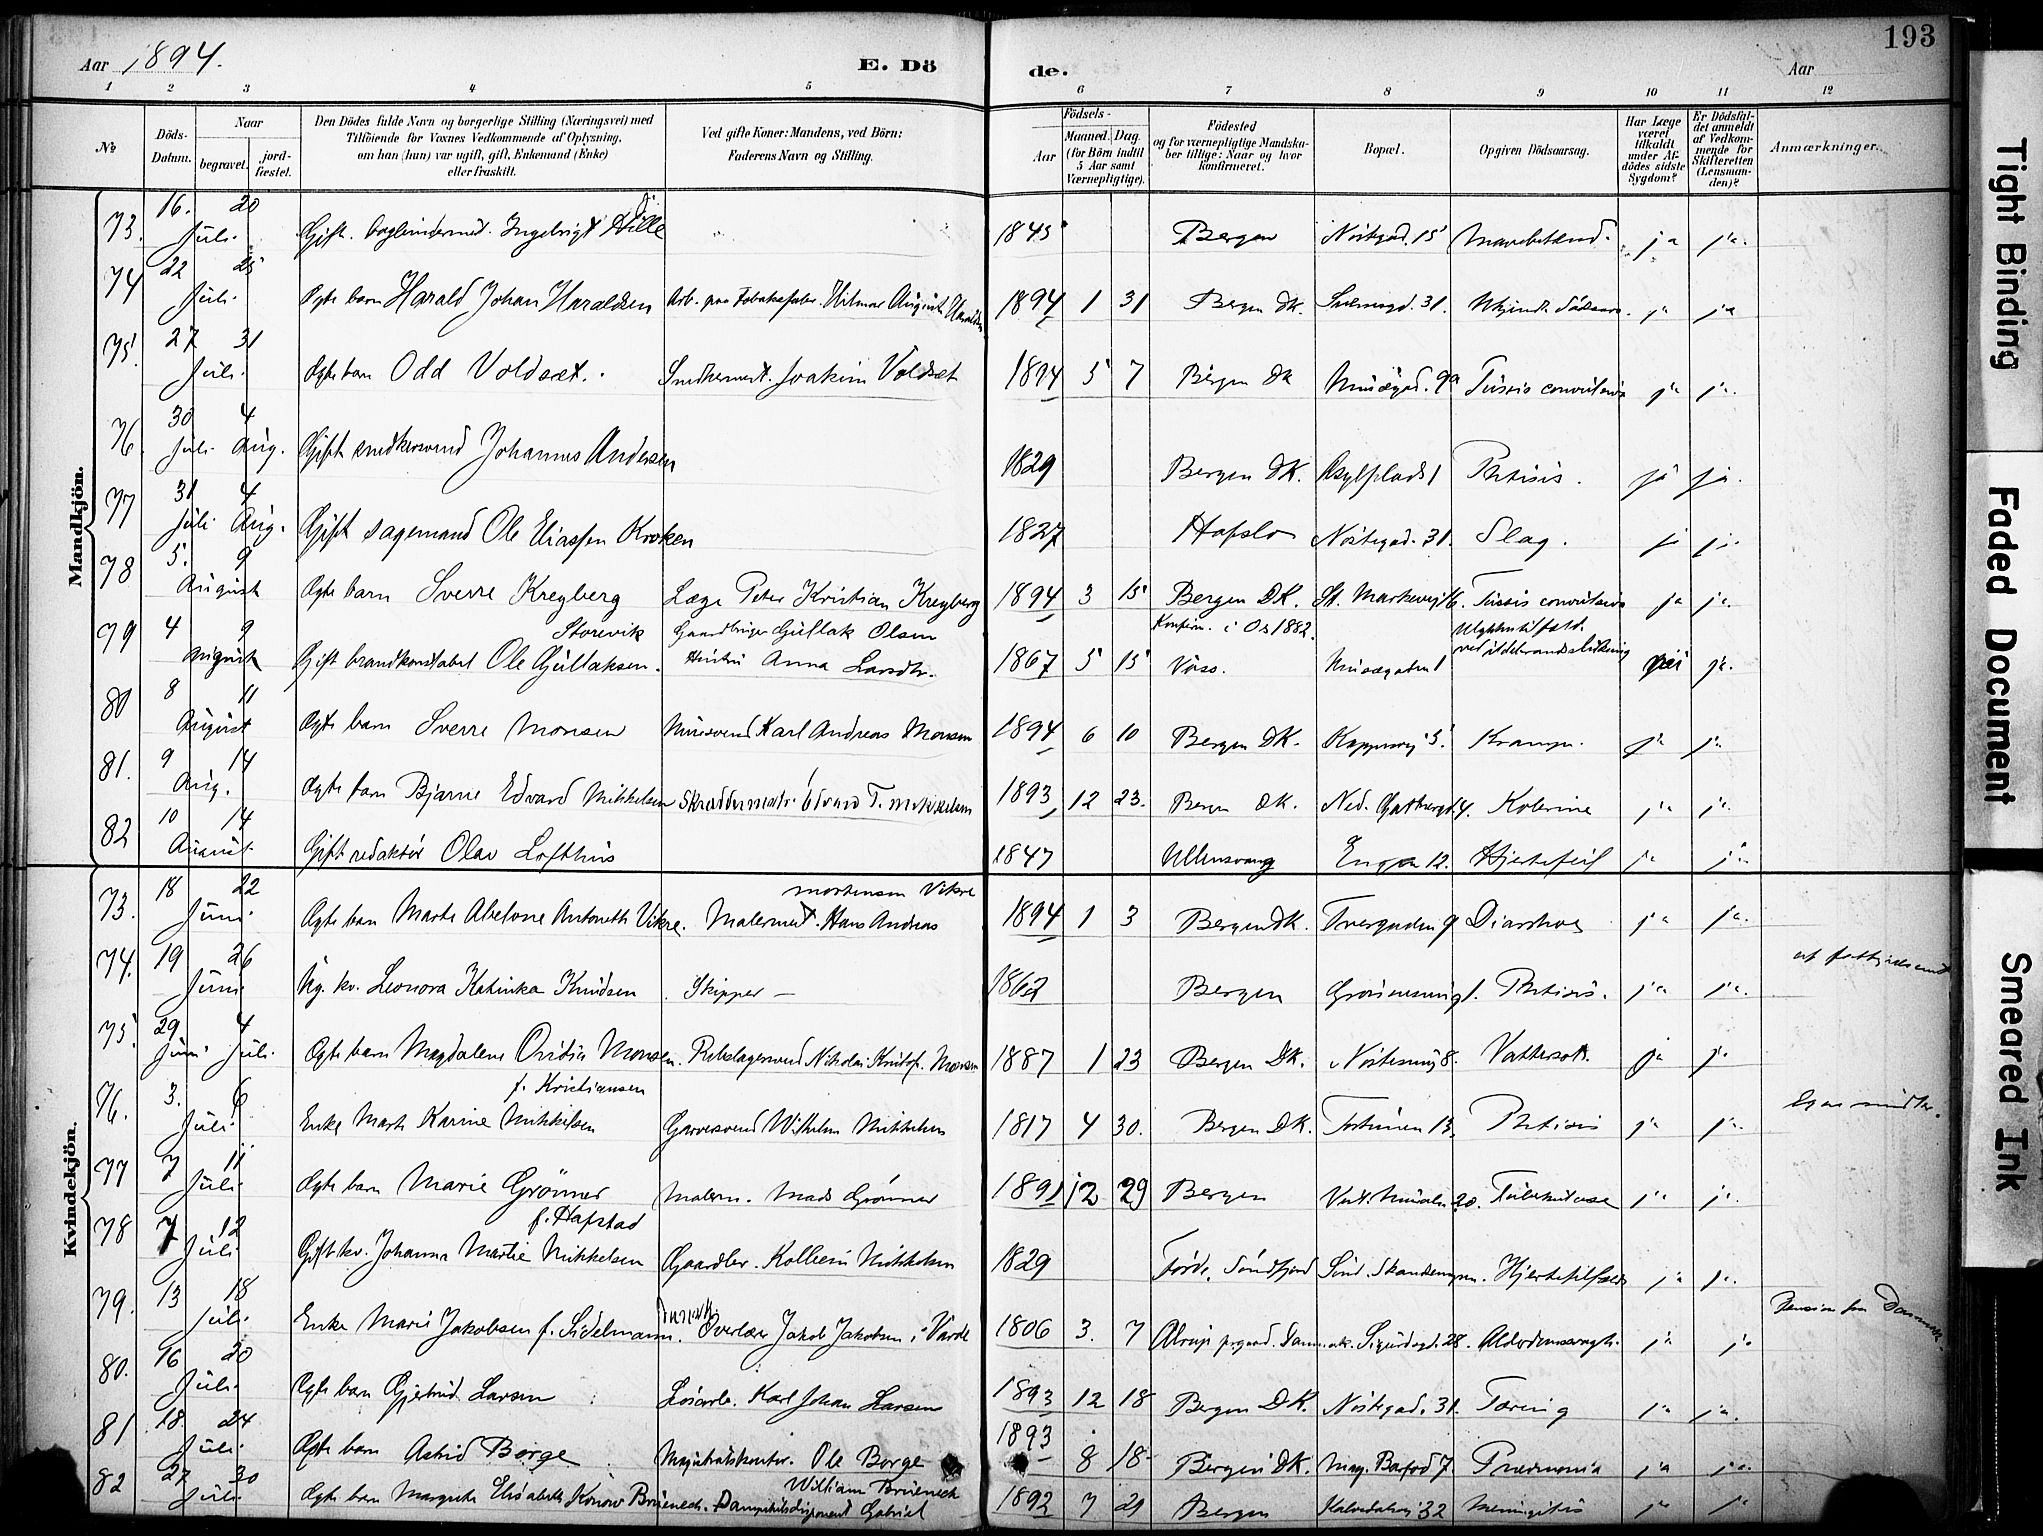 193
Aar 1894.
E. Dö de.
Aar
1 2 3 4 5 6 7 8 9 10 11 12
№
Döds-Datum.
Naar
begravet.
jord-fæstet.
Den Dödes fulde Navn og borgerlige Stilling (Næringsvei) med
Tilföiende for Voxnes Vedkommende af Oplysning,
om han (hun) var ugift, gift, Enkemand (Enke)
eller fraskilt.
Ved gifte Koner: Mandens, ved Börn:
Faderens Navn og Stilling.
Födsels-
Aar
Maaned. Dag.
(for Börn indtil
5 Aar samt
Værnepligtige).
Födested
og for værnepligtige Mandska-
ber tillige: Naar og hvor
konfirmeret.
Bopæl.
Opgiven Dödsaarsag.
Har Læge
været
tilkaldt
under Af-
dödes sidste
Sygdom?
Er Dödsfal-
det anmeldt
af Vedkom-
mende for
Skifteretten
(Lensman-
den)?
Anmærkninger.
Mandkjön.
73. 16. 20 Juli. Gift. Ingebrigt Hille 1845 Bergen Nöstegad. 15 ja ja.
74 22 25 Juli. Ægte barn Harald Johan Haraldsen Arb. paa Tobaksfabr. Hilmar August Haraldsen 1894 1 31 Bergen DK. 31. ja ja
75. 27 31 Juli. Ægte barn Odd Voldsæt. Snedkermest. Joakim Voldsæt 1894 5 7 Bergen DK Museegad. 9a Tussis convulsiva ja ja.
76. 30 Juli. 4 Aug. Gift snedkersvend Johannes Andersen 1829 Bergen DK. Asylplads 1 Phtisis. ja ja.
77 31 Juli 4 Aug. Gift sagemand Ole Eliassen Kroken 1827 Hafslo Nöstegad. 31. Slag. ja ja.
78 5. 9 August Ægte barn Sverre Kreyberg Læge Peter Kristian Kreyberg 1894 3 15 Bergen DK. St. Markevei 16. Tussis convulsiva ja ja.
79 4 9 August Gift brandkonstabel Ole Gullaksen Storevik. Gaardbruger Gullak Olsen Hustru Anna Larsdtr. 1867 5 15 Konfirm. i Os 1882. Voss. Museegaten 1 Ulykkestilfæld. ved ildebrandsslukning nei ja.
80 8 11 August Ægte barn Sverre Monsen Muresvend Karl Andreas Monsen 1894 6 10 Bergen DK. 5. Krampe. ja ja.
81. 9 14 Aug. Ægte barn Bjarne Edvard Mikkelsen Skræddermestr. Edvard T. Mikkelsen 1893 12 23. Bergen DK. Ned. 4. Kolerine ja ja.
82 10 14 August. Gift redaktör Olav Lofthus 1847 Ullensvang Engen 12. Hjertefeil ja ja.
Kvindekjön.
73. 18 22 Juni. Ægte barn Marta Abelone Antonette Vikre. Malermest. Hans Andreas Mortensen Vikre 1894 1 3 Bergen DK. Tvergaden 9 Diarrhoe ja ja.
74. 19 26 Juni Ug. kv. Leonora Katinka Knudsen Skipper — 1862 Bergen 1. Phtisis. ja ja.
75. 29 Juni 4 Juli. Ægte barn Magdalene Ovidia Monsen. Rebslagersvend Nikolai Kristof. Monsen 1887 1 23 Bergen DK. Nöstesmug 8. Vattersot. ja ja
76. 3. 6 Juli. Enke Marte Karine Mikkelsen f. Kristiansen Garversvend Wilhelm Mikkelsen 1817 4 30. Bergen DK. 13. Phtisis ja ja. Egne midler.
77 7 11 Juli. Ægte barn Marie Grönner Malerm. Mads Grönner 1891 12 29 Bergen 20. Tuberkulose ja ja.
78 7 12 Juli. Gift kv. Johanna Martie Mikkelsen f. Hafstad Gaardbr. Mikkelsen 1829 Förde, Söndfjord Hjertetilfælde ja ja.
79. 13 18 Juli. Enke Marie Jakobsen f. Sidelmann. Overlærer Jakob Jakobsen i Varde Danmark 1806 3. 7 Danmark. Sigurdsgd. 28. Alderdomssvagh. ja ja Pension fra Danmark.
80. 16 20 Juli. Ægte barn Gjertrud Larsen Lösarb. Karl Johan Larsen 1893 12 18 Bergen DK. Nöstegad. 31. Tæring ja ja.
81 18. 24 Juli. Ægte barn Astrid Borge Magistratskontor. Ole Borge 1893 8 18 Bergen DK. 7. Pneumonia ja ja.
82 27 30 Juli. Ægte barn Margrethe Elisabeth Konow Brüenech. Dampskibsdisponent Gabriel William Brüenech 1892 7 29 Bergen Kalvedalsvei 32 Meningitis ja ja
Tight Binding
Faded Document
Smeared Ink